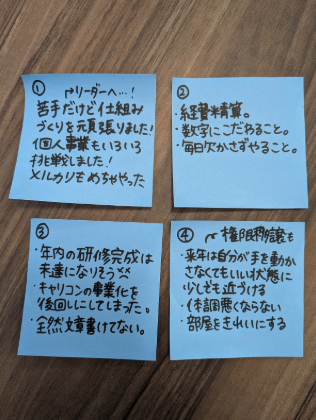 ①
→リーダーへ…!
苦手だけど仕組み
づくりを頑張りました!
個人事業もいろいろ
挑戦しました!
メルカリもめちゃやった
②
・経費精算。
・数字にこだわること。
・毎日欠かさずやること。
③
・年内の研修完成は
未達になりそう
・キャリコンの事業化を
後回しにしてしまった。
・全然文章書けてない。
④
権限移譲も
・来年は自分が手を動か
さなくてもいい状態に
少しでも近づける
・体調悪くならない
・部屋をきれいにする